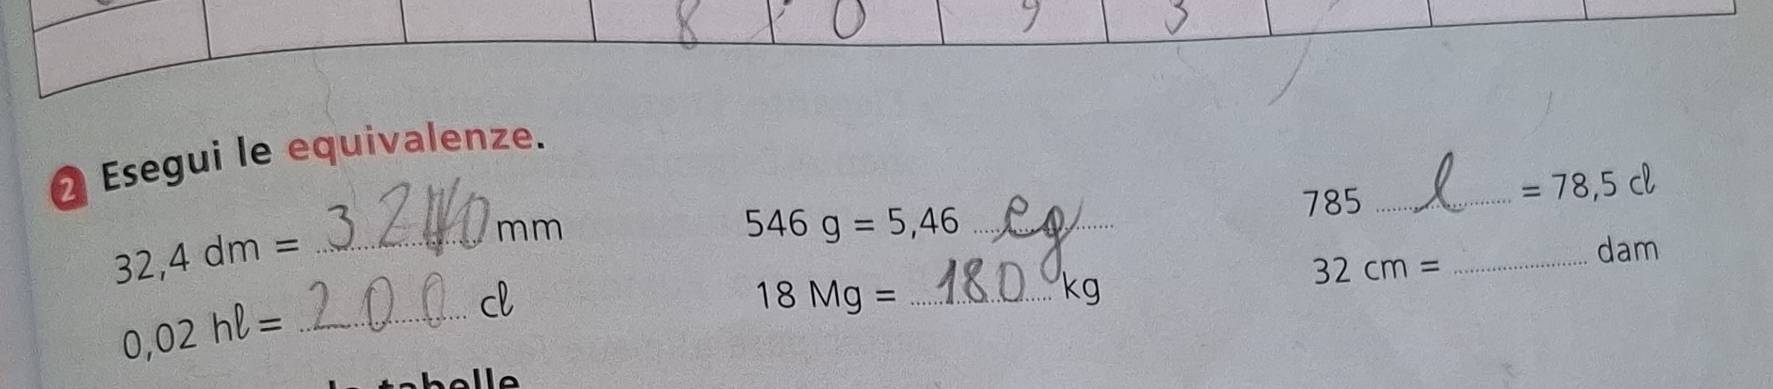 8 , 0 9 3
2 Esegui le equivalenze.
32,4 dm = 3240 mm
546 g = 5,46 eg
785 l = 78,5 cl
0,02 hl = 200 cl
18 Mg = 180 kg
32 cm = ............ dam
tabelle